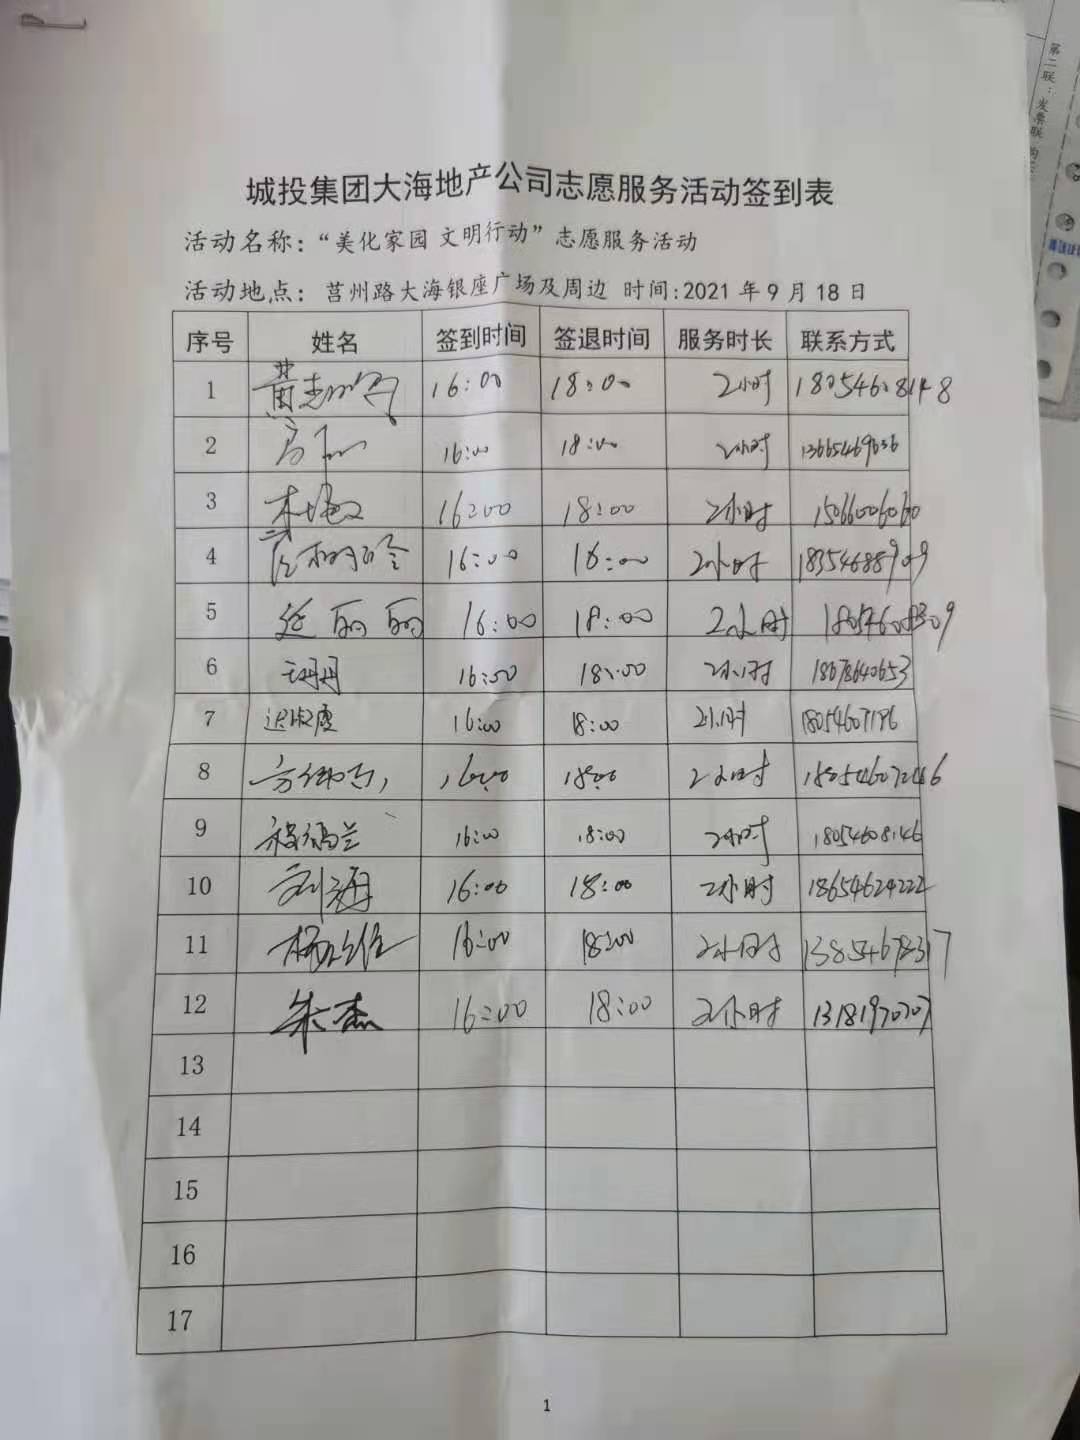 城投集团大海地产公司志愿服务活动签到表
活动名称：“美化家园 文明行动”志愿服务活动
活动地点： 莒州路大海银座广场及周边 时间:2021年9月18日
序号 姓名 签到时间 签退时间 服务时长 联系方式
1 16:00 18:00 2小时 18054608148
2 16:00 18:00 2小时 13665469636
3 16:00 18:00 2小时 15066006060
4 16:00 16:00 2小时 18354688909
5 延丽丽 16:00 18:00 2小时 18054608309
6 16:00 18:00 2小时 18678640653
7 迟淑霞 16:00 18:00 2小时 18054607186
8 16:00 18:00 2小时
9 16:00 18:00 2小时 18054608146
10 刘海 16:00 18:00 2小时 18654624222
11 16:00 18:00 2小时 13854678317
12 朱杰 16:00 18:00 2小时 13181970707
13
14
15
16
17
1
第二联：发票联